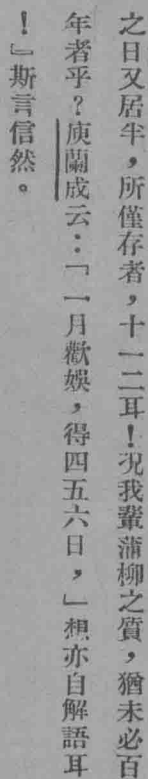 之日又居半，所僅存者，十一二耳！况我輩蒲柳之質，猶未必百
年者乎？庾蘭成云：「一月歡娛，得四五六日，」想亦自解語耳
！」斯言信然。